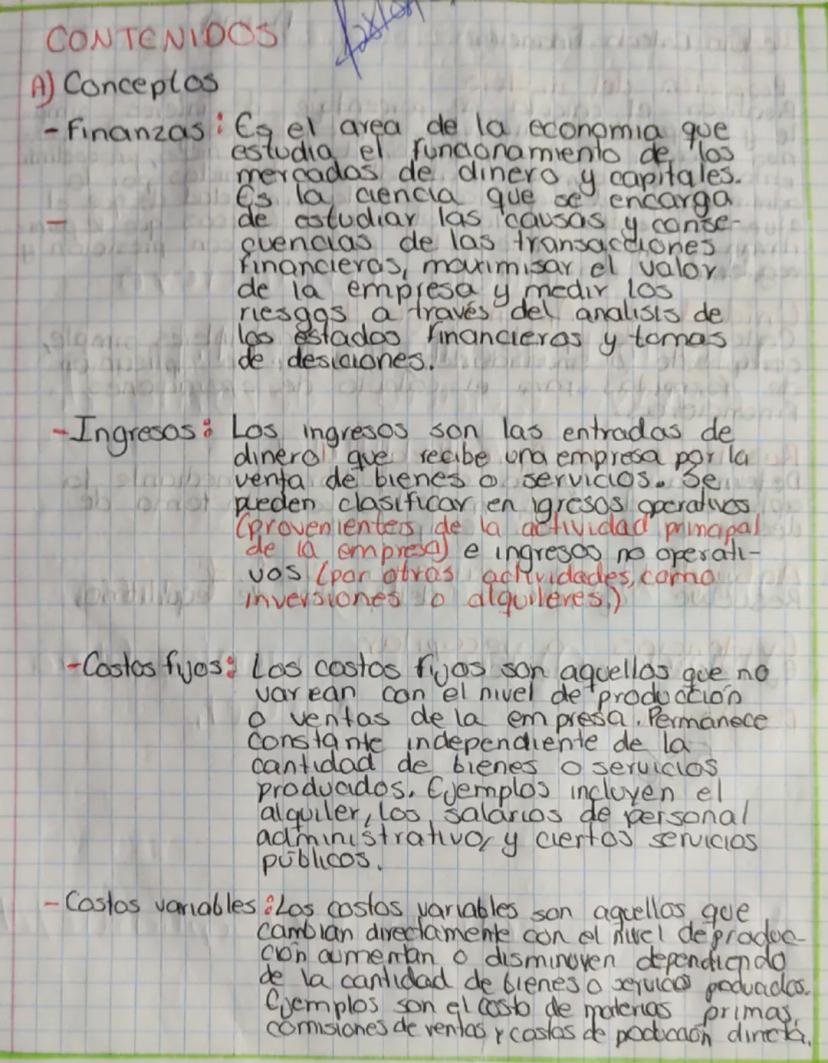 CONTENIDOS
A) Conceptos
- Finanzas: Es el area de la economia que
estudia el funcionamiento de los
mercados de dinero y capitales.
Es la ciencia que se encarga
de estudiar las causas y conse-
cuencias de las transacciones
financieras, maximisar el valor
de la empresa y medir los
riesgos a través del analisis de
los estados financieros y tomas
de desiciones.
- Ingresos: Los ingresos son las entradas de
dinero que recibe una empresa por la
venta de bienes o servicios. Se
pueden clasificar en igresos operativos
(provenientes de la actividad principal
de la empresa) e ingresos no operati-
vos (por otras actividades, como
inversiones o alquileres.)
- Costos fijos: Los costos fijos son aquellos que no
varean con el nivel de producción
o ventas de la empresa. Permanece
constante independiente de la
cantidad de bienes o servicios
producidos. Ejemplos incluyen el
alquiler, los salarios de personal
administrativo, y ciertos servicios
públicos.
- Costos variables: Los costos variables son aquellos que
cambian directamente con el nivel de produc-
ción aumentan o disminuyen dependiendo
de la cantidad de bienes o servicios poduados.
Ejemplos son el costo de materias primas,
comisiones de ventas y costos de poducción directa.